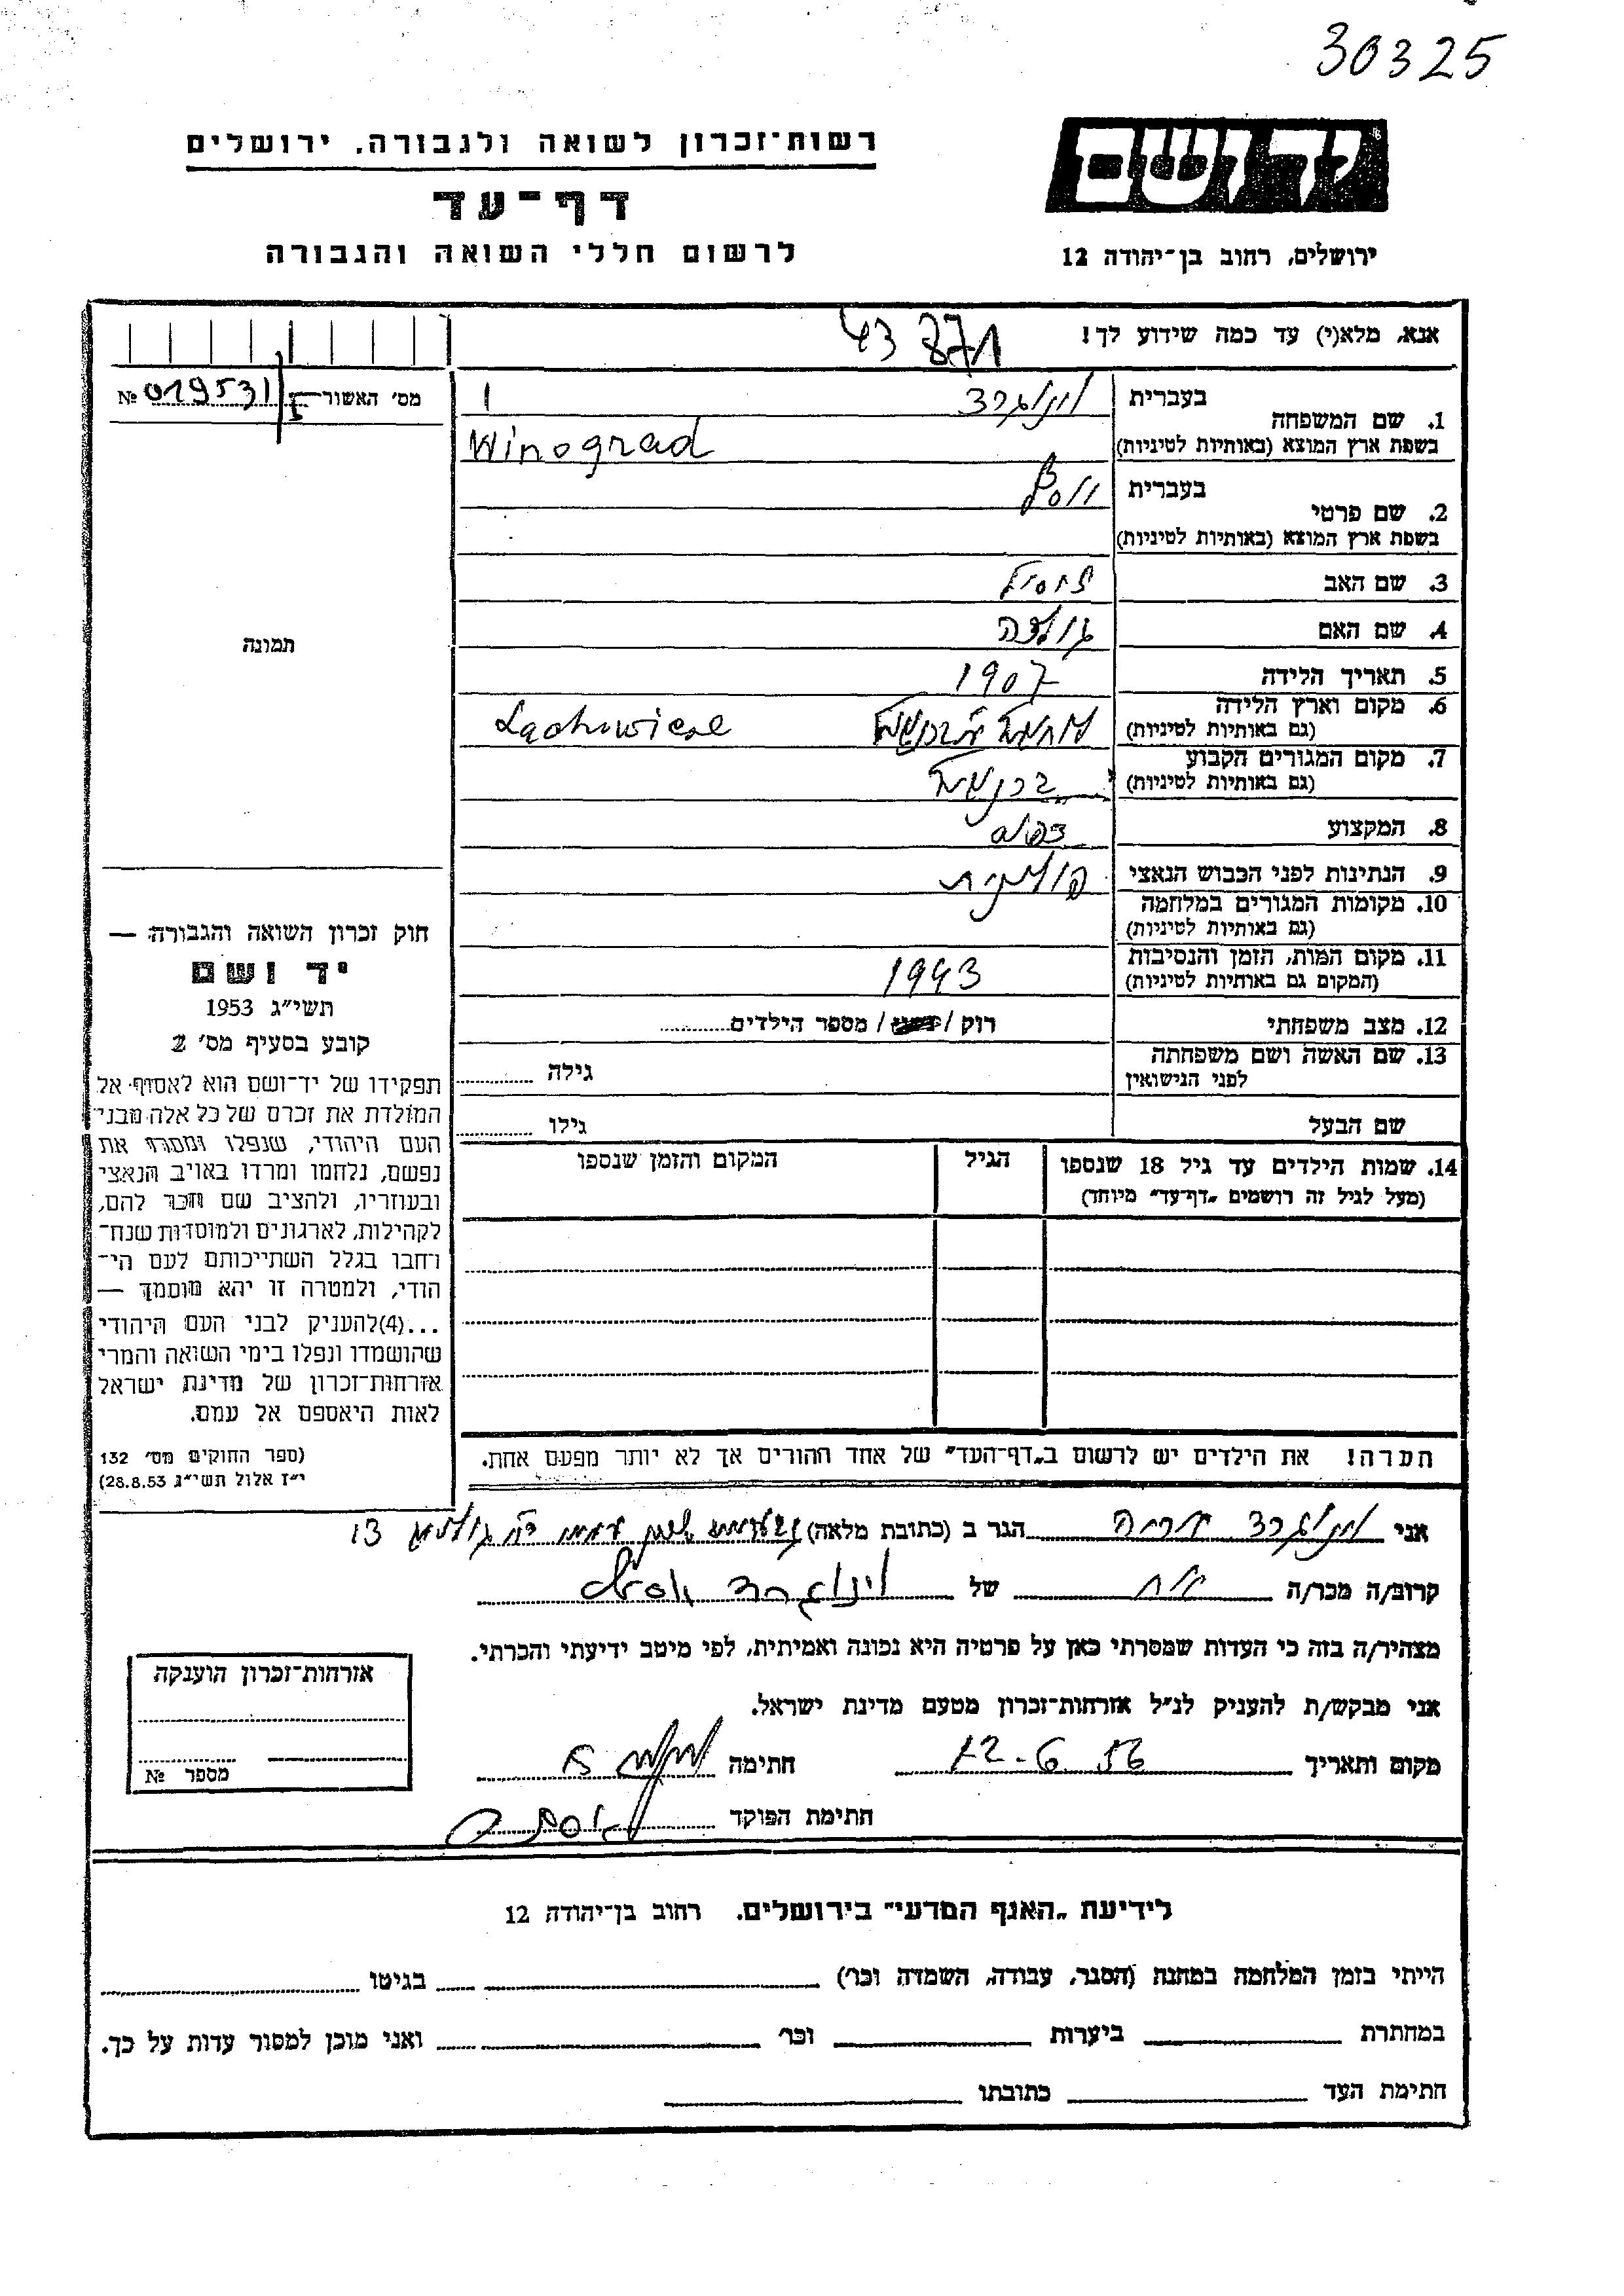 30325
יד ושם
רשות־זכרון לשואה ולגבורה, ירושלים
דף־עד
לרשום חללי השואה והגבורה
ירושלים, רחוב בן־יהודה 12
אנא, מלא(י) עד כמה שידוע לך!
43 871
מס׳ האשור № 019531
1. שם המשפחה
בעברית וינוגרד
בשפת ארץ המוצא (באותיות לטיניות) Winograd
2. שם פרטי
בעברית
בשפת ארץ המוצא (באותיות לטיניות)
3. שם האב
4. שם האם גולדה
5. תאריך הלידה 1907
6. מקום וארץ הלידה
(גם באותיות לטיניות) Lachowicze
7. מקום המגורים הקבוע
(גם באותיות לטיניות)
8. המקצוע
9. הנתינות לפני הכבוש הנאצי פולנית
10. מקומות המגורים במלחמה
(גם באותיות לטיניות)
11. מקום המות, הזמן והנסיבות
(המקום גם באותיות לטיניות) 1943
12. מצב משפחתי רוק / / מספר הילדים
13. שם האשה ושם משפחתה
לפני הנישואין גילה
שם הבעל גילו
14. שמות הילדים עד גיל 18 שנספו הגיל המקום והזמן שנספו
(מעל לגיל זה רושמים „דף־עד״ מיוחד)
הערה! את הילדים יש לרשום ב„דף־העד״ של אחד ההורים אך לא יותר מפעם אחת.
תמונה
חוק זכרון השואה והגבורה —
יד ושם
תשי״ג 1953
קובע בסעיף מס׳ 2
תפקידו של יד־ושם הוא לאסוף אל
המולדת את זכרם של כל אלה מבני
העם היהודי, שנפלו ומסרו את
נפשם, נלחמו ומרדו באויב הנאצי
ובעוזריו, ולהציב שם וזכר להם,
לקהילות, לארגונים ולמוסדות שנח־
רחבו בגלל השתייכותם לעם הי־
הודי, ולמטרה זו יהא מוסמך —
...(4)להעניק לבני העם היהודי
שהושמדו ונפלו בימי השואה והמרי
אזרחות־זכרון של מדינת ישראל
לאות היאספם אל עמם.
(ספר החוקים מס׳ 132
י״ז אלול תשי״ג 28.8.53)
אני וינוגרד הגר ב (כתובת מלאה) 13
קרוב/ה מכר/ה אח של וינוגרד
מצהיר/ה בזה כי העדות שמסרתי כאן על פרטיה היא נכונה ואמיתית, לפי מיטב ידיעתי והכרתי.
אני מבקש/ת להעניק לנ״ל אזרחות־זכרון מטעם מדינת ישראל.
מקום ותאריך 12-6 56 חתימה
חתימת הפוקד
אזרחות־זכרון הוענקה
מספר №
לידיעת „האגף המדעי״ בירושלים, רחוב בן־יהודה 12
הייתי בזמן המלחמה במחנה (הסגר, עבודה, השמדה וכו׳) בגיטו
במחתרת ביערות וכו׳ ואני מוכן למסור עדות על כך.
חתימת העד כתובתו